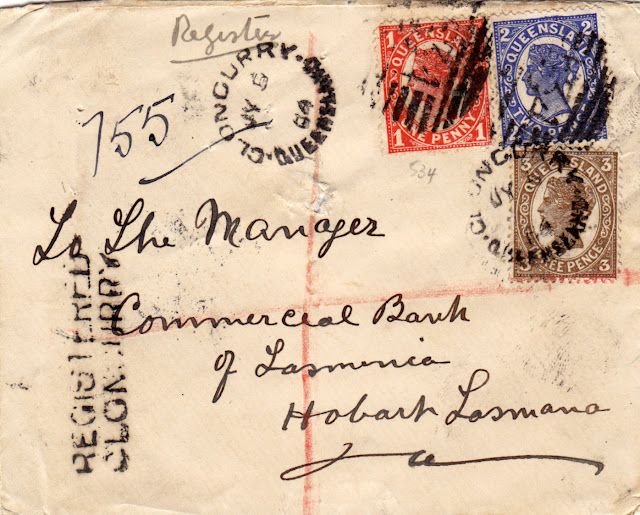 Register
755
CLONCURRY
QUEENSLAND
1 QUEENSLAND 1
1 ONE PENNY 1
2 QUEENSLAND 2
TWO PENCE
534
CLONCURRY
QUEENSLAND
3 QUEENSLAND 3
3 THREE PENCE 3
To The Manager
REGISTERED
CLONCURRY
Commercial Bank
of Tasmenia
Hobart Tasmana